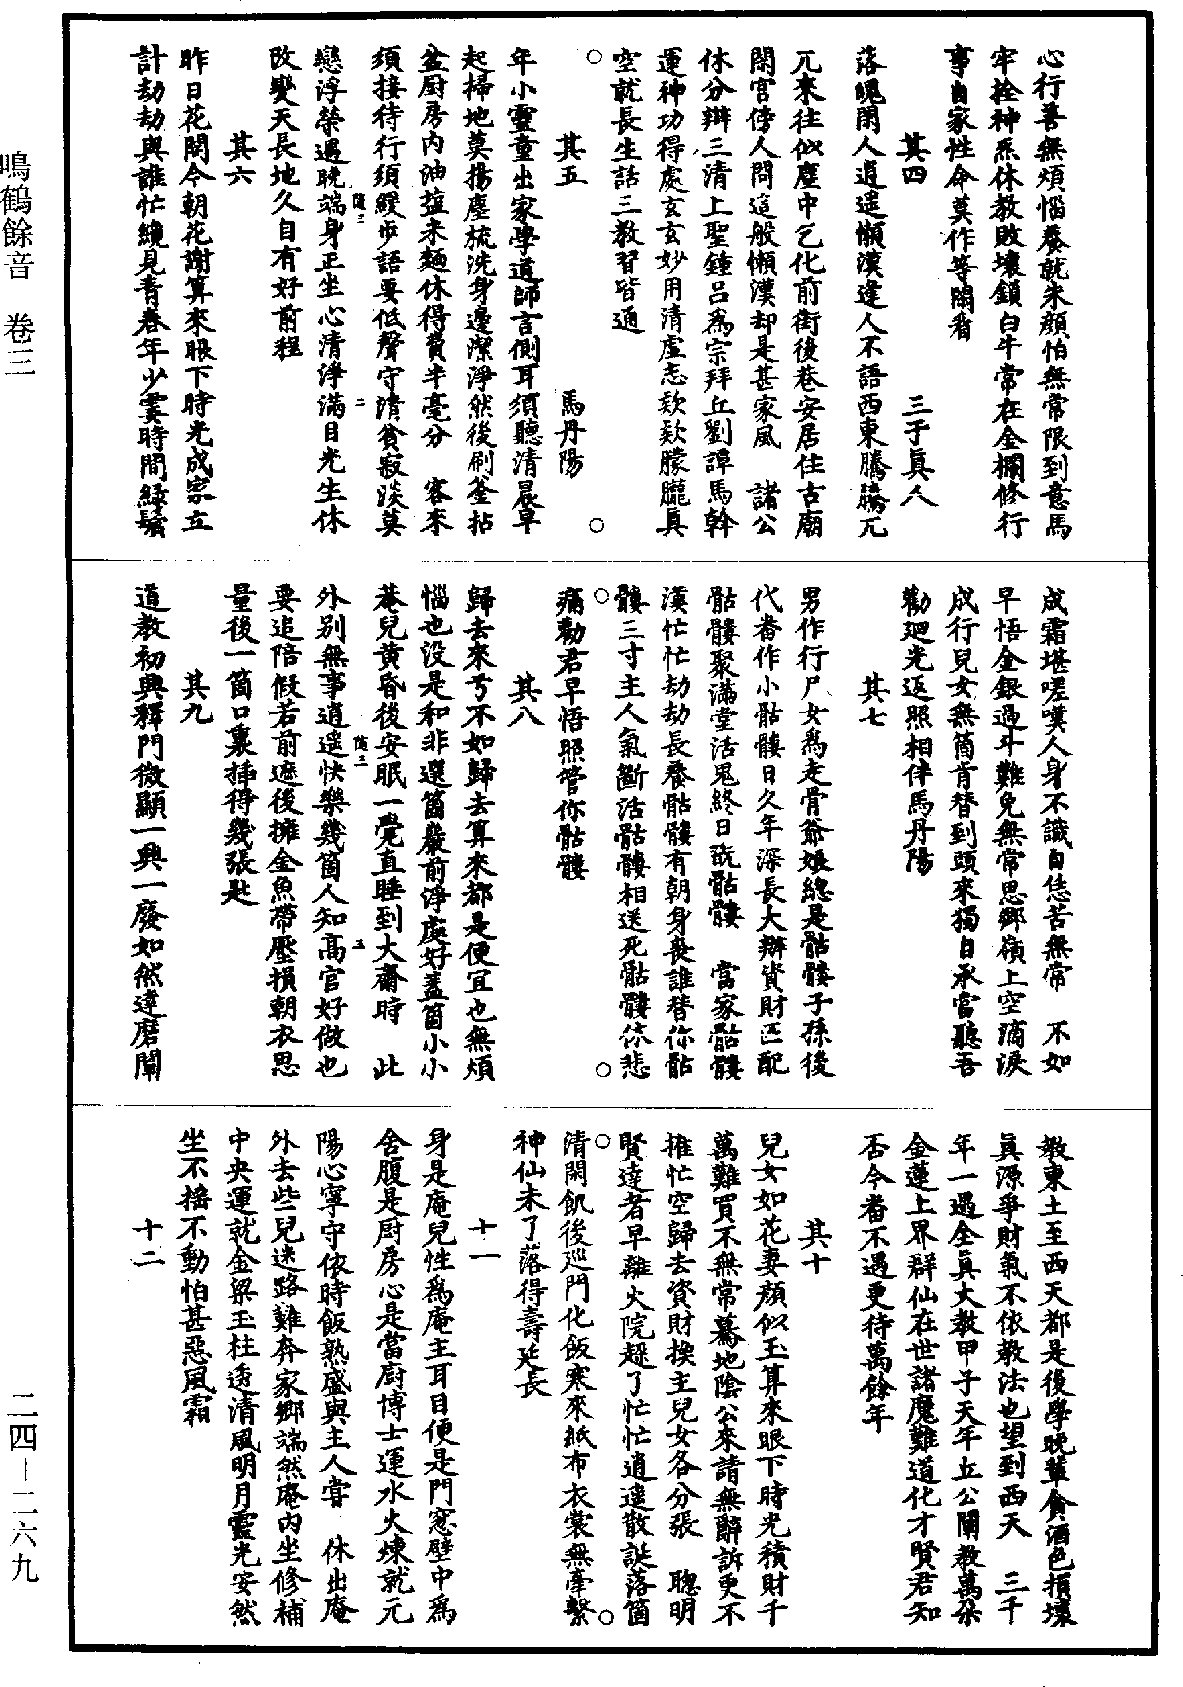 心行善無煩惱養就朱顏怕無常限到意馬
牢拴神炁休教敗壞鎖白牛常在金欄修行
事自家性命莫作等閑看
其四　三于真人
落魄閑人逍遥懶漢逢人不語西東騰騰兀
兀來往似塵中乞化前街後巷安居住古廟
閑宫傍人問這般懶漢却是甚家風　諸公
休分辯三清上聖鍾呂爲宗拜丘劉譚馬斡
運神功得處玄玄妙用清虛志欵欵朦朧真
空就長生話三教習皆通
其五　馬丹陽
年小靈童出家學道師言側耳須聽清晨早
起掃地莫揚塵梳洗身邊潔淨然後刷釜拈
盆厨房内油鹽米麵休得費半毫分　客來
須接待行須緩步語要低聲守清貧寂淡莫
戀浮榮遇晚端身正坐心清淨滿目光生休
改變天長地久自有好前程
其六
昨日花開今朝花謝算來眼下時光成家立
計劫劫與誰忙纔見青春年少霎時間緑鬢
成霜堪嗟嘆人身不識自恁苦無常　不如
早悟金銀過斗難免無常思鄉嶺上空滴淚
成行兒女無箇肯替到頭來獨自承當聽吾
勸迴光返照相伴馬丹陽
其七
男作行尸女爲走骨爺娘總是骷髏子孫後
代番作小骷髏日久年深長大辦資財匹配
骷髏聚滿堂活鬼終日玩骷髏　當家骷髏
漢忙忙劫劫長養骷髏有朝身喪誰替你骷
髏三寸主人氣斷活骷髏相送死骷髏休悲
痛勸君早悟照管你骷髏
其八
歸去來兮不如歸去算來都是便宜也無煩
惱也没是和非選箇巖前淨處好蓋箇小小
菴兒黄昏後安眠一覺直睡到大齋時　此
外别無事逍遥快樂幾箇人知高官好做也
要追陪假若前遮後擁金魚帶壓損朝衣思
量後一箇口裏插得幾張匙
其九
道教初興釋門微顯一興一廢如然達磨闡
教東土至西天都是後學晚輩貪酒色損壞
真源爭財氣不依教法也望到西天　三千
年一遇全真大教甲子天年丘公闡教萬朵
金蓮上界群仙在世諸魔難道化才賢君知
否今番不遇更待萬餘年
其十
兒女如花妻顔似玉算來眼下時光積財千
萬難買不無常驀地陰公來請無辭訴更不
推忙空歸去資財挨主兒女各分張　聰明
賢達者早離火院趕了忙忙逍遥散誕落箇
清閑飢後巡門化飯寒來紙布衣裳無牽繫
神仙未了落得壽延長
十一
身是庵兒性爲庵主耳目便是門窓壁中爲
舍腹是厨房心是當厨博士運水火煉就元
陽心寧守依時飯熟盛與主人嘗　休出庵
外去些兒迷路難奔家鄉端然庵内坐修補
中央運就金梁玉柱透清風明月靈光安然
坐不摇不動怕甚惡風霜
十二
隨三　二
隨三　五
鳴鶴餘音　卷三
二四—二六九